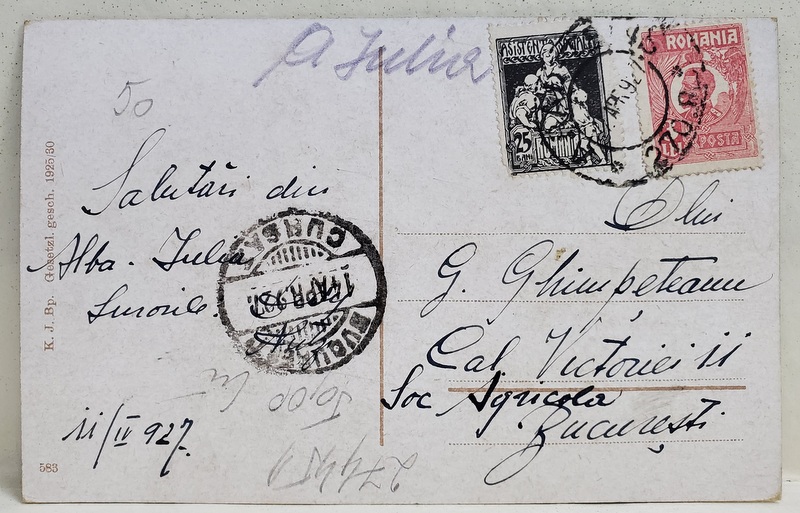 A Iulia
50
ASISTENȚA SOCIALĂ
25
BANI
ROMANIA
POSTA
Salutări din
Alba-Iulia
Surorile
11/IV 927.
Dlui
G. Ghimpețeanu
Cal. Victoriei 11
Soc Agricola
București
CURSA
14 APR. 927
BUCUREȘTI
K. J. Bp. Gesetzl. gesch. 1925/30
583